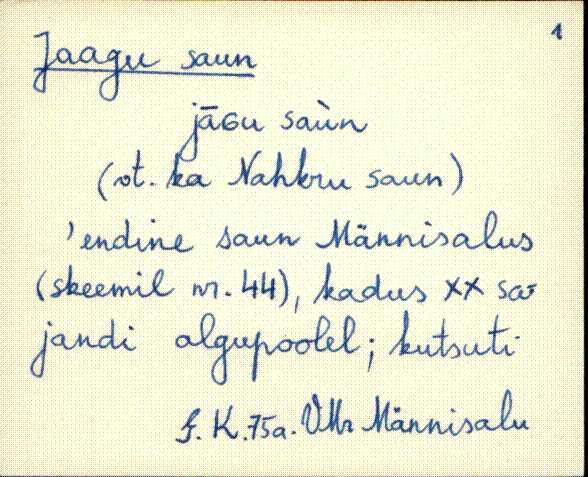 1
Jaagu saun
jāGu saùn
(vt. ka Nahkru saun)
'endine saun Männisalus
(skeemil nr. 44), kadus XX sa-
jandi algupoolel; kutsuti
f. K. 75a. VMr Männisalu